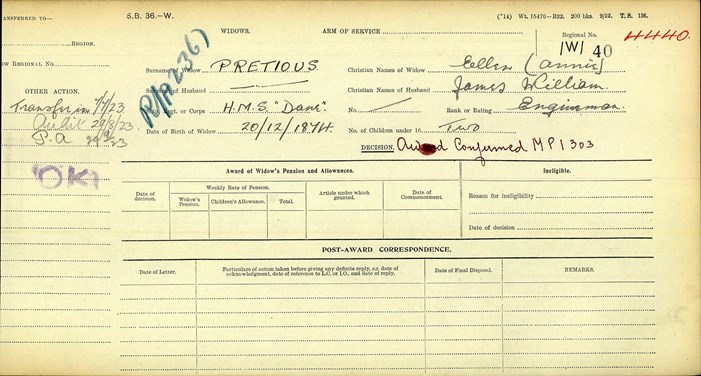 TRANSFERRED TO—
S.B. 36.—W.
("14) Wt. 15470—B22. 200 bks. 9/22. T.S. 136.
WIDOWS.
ARM OF SERVICE
Regional No.
4440.
REGION.
1W1 40
NEW REGIONAL NO.
Surname of Widow PRETIOUS
Christian Names of Widow Ellen (Annie)
Surname of Husband
Christian Names of Husband James William.
OTHER ACTION.
Transfer in 7/7/23
Regt. or Corps H.M.S. "Dane".
No.
Rank or Rating Engineman.
Audit 29/8/23.
Date of Birth of Widow 20/12/1874.
No. of Children under 16 Two
P.A
DECISION. Award Confirmed MP1303
Award of Widow's Pension and Allowances.
Ineligible.
Date of decision.
Weekly Rate of Pension.
Widow's Pension.
Children's Allowance.
Total.
Article under which granted.
Date of Commencement.
Reason for ineligibility
Date of decision
POST-AWARD CORRESPONDENCE.
Date of Letter.
Particulars of action taken before giving any definite reply, e.g. date of acknowledgment, date of reference to L.C. or I.O., and date of reply.
Date of Final Disposal.
REMARKS.